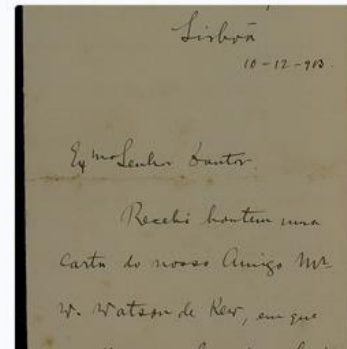 Lisbôa
10-12-903.
Exmo Senhor Doutor
Recebi hontem uma
carta do nosso Amigo Mr.
W. Watson de Kew, em que